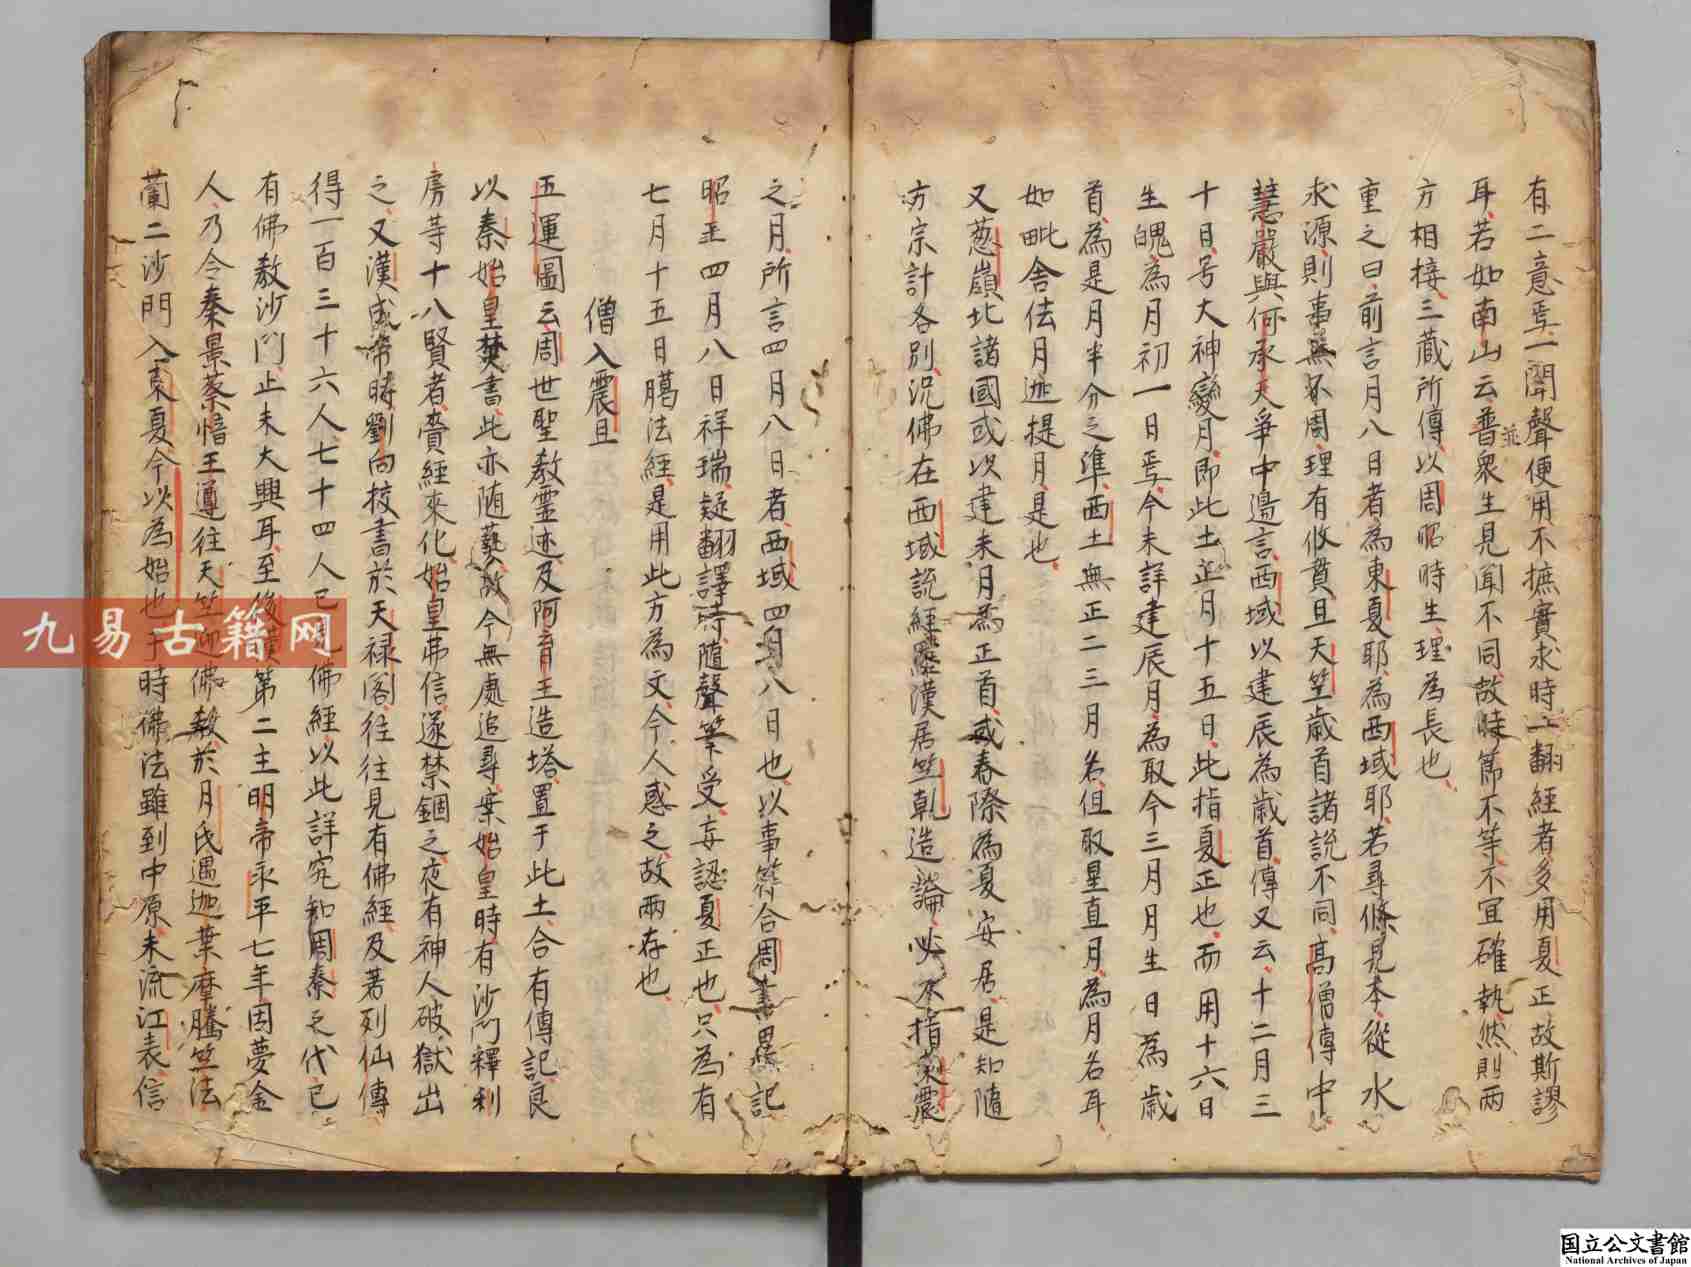 有二意焉一聞聲便用不摭實求時二翻經者多用夏正故斯謬
耳若如南山云普眾生見聞不同故時節不等不宜確執然則兩
並
方相接三藏所傳以周昭時生理為長也
重之曰前言月八日者為東夏耶為西域耶若尋條見本從水
求源則事無不周理有攸賁且天竺歲首諸說不同高僧傳中
慧嚴與何承天爭中邊言西域以建辰為歲首傳又云十二月三
十日号大神變月即此土正月十五日此指夏正也而用十六日
生魄為月初一日焉今未詳建辰月為取今三月月生日為歲
首為是月半分之準西土無正二三月名但取星直月為月名耳
如毗舍佉月迦提月是也
又葱嶺北諸國或以建未月為正首或春際為夏安居是知隨
方宗計各別況佛在西域說經羅漢居竺乹造論必不指東震
之月所言四月八日者西域四月八日也以事符合周書異記
昭王四月八日祥瑞疑翻譯時隨聲筆受妄認夏正也只為有
七月十五日臈法經是用此方為文今人惑之故兩存也
僧入震旦
五運圖云周世聖教霊迹及阿育王造塔置于此土合有傳記良
以秦始皇焚書此亦随藝故今無處追尋案始皇時有沙門釋利
房等十八賢者賫經來化始皇弗信遂禁錮之夜有神人破獄出
之又漢成帝時劉向挍書於天禄閣往往見有佛經及著列仙傳
得一百三十六人七十四人已 佛經以此詳究知周秦之代已
有佛教沙門止未大興耳至後漢第二主明帝永平七年因夢金
人乃令秦景蔡愔王遵往天竺迎佛教於月氏遇迦葉摩騰竺法
蘭二沙門入東夏今以為始也于時佛法雖到中原未流江表信
九易古籍网
国立公文書館
National Archives of Japan